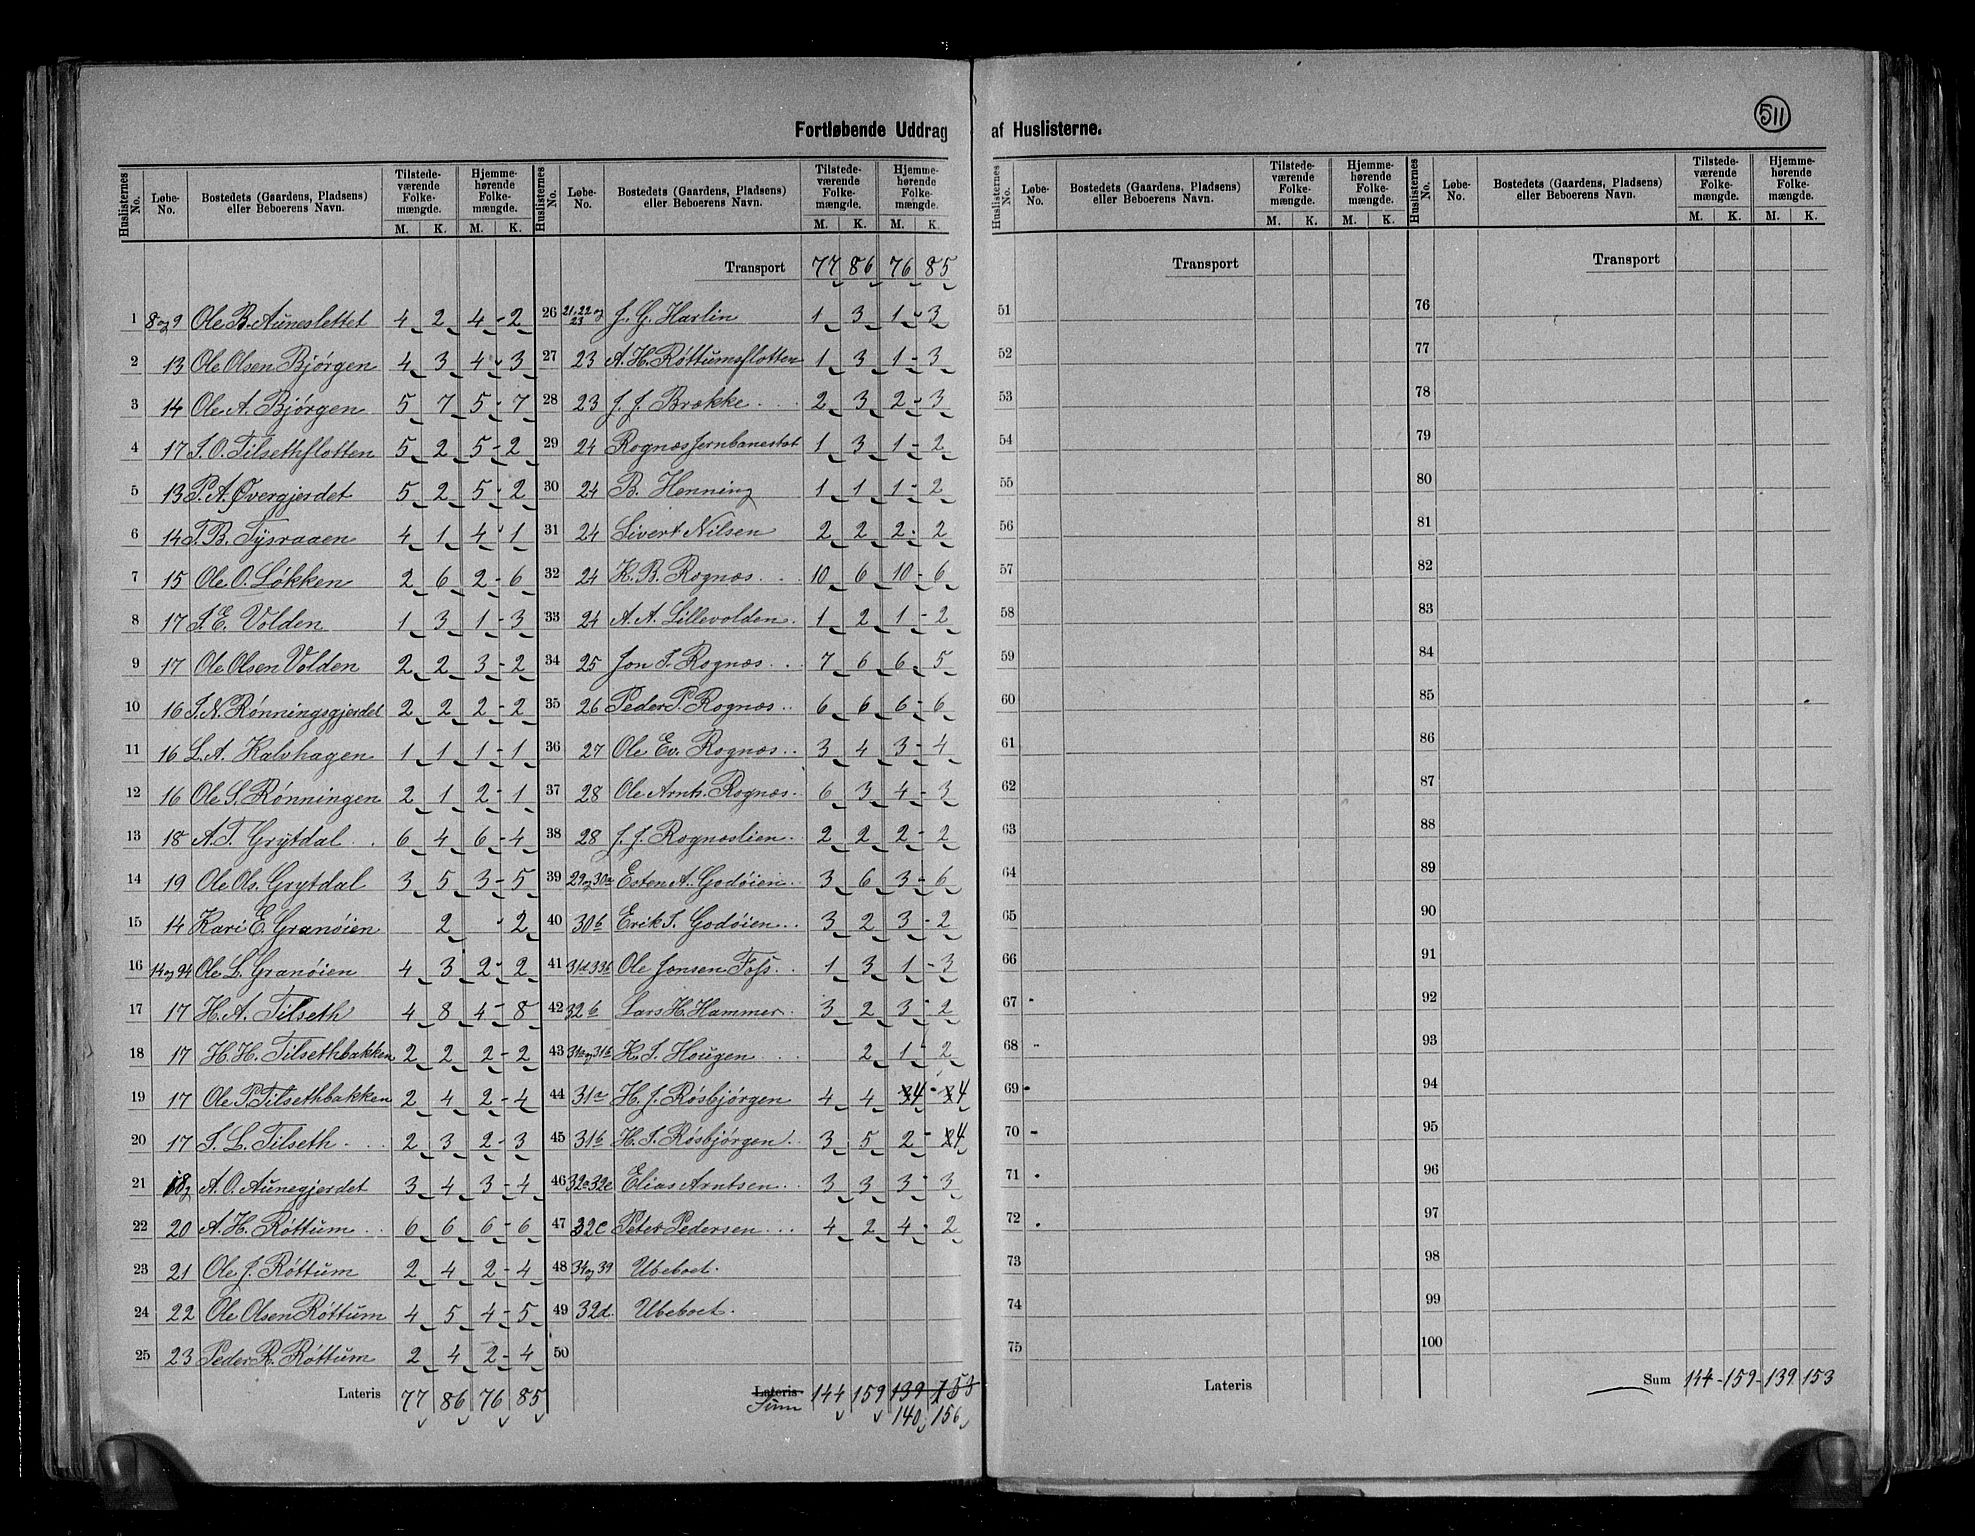 511
Fortløbende Uddrag af Huslisterne.
Huslisternes No. Løbe-No. Bostedets (Gaardens, Pladsens) eller Beboerens Navn. Tilstedeværende Folkemængde. M. K. Hjemmehørende Folkemængde. M. K.
1 8 og 9 Ole B. Auneslettet 4 2 4 - 2
2 13 Ole Olsen Bjørgen 4 3 4 - 3
3 14 Ole A. Bjørgen 5 7 5 - 7
4 17 S. O. Tilsethflotten 5 2 5 - 2
5 13 P. A. Øvergjerdet 5 2 5 - 2
6 14 T. B. Tysraaen 4 1 4 1
7 15 Ole O. Løkken 2 6 2 - 6
8 17 S. E. Volden 1 3 1 - 3
9 17 Ole Olsen Volden 2 2 3 - 2
10 16 S. N. Rønningsgjerdet 2 2 2 - 2
11 16 L. A. Kalvhagen 1 1 1 - 1
12 16 Ole S. Rønningen 2 1 2 - 1
13 18 A. T. Grytdal 6 4 6 - 4
14 19 Ole Ols. Grytdal 3 5 3 - 5
15 14 Kari E. Granøien 2 2
16 14 og 94 Ole L. Granøien 4 3 2 - 2
17 17 H. A. Tilseth 4 8 4 - 8
18 17 H. H. Tilsethbakken 2 2 2 - 2
19 17 Ole P. Tilsethbakken 2 4 2 - 4
20 17 S. L. Tilseth 2 3 2 - 3
21 A. O. Aunegjerdet 3 4 3 - 4
22 20 A. H. Røttum 6 6 6 - 6
23 21 Ole J. Røttum 2 4 2 - 4
24 22 Ole Olsen Røttum 4 5 4 - 5
25 23 Peder R. Røttum 2 4 2 - 4
Lateris 77 86 76 85
Huslisternes No. Løbe-No. Bostedets (Gaardens, Pladsens) eller Beboerens Navn. Tilstedeværende Folkemængde. M. K. Hjemmehørende Folkemængde. M. K.
Transport 77 86 76 85
26 21.22 og 23 J. G. Harlin 1 3 1 - 3
27 23 A. H. Røttumsflotten 1 3 1 - 3
28 23 J. J. Brække 2 3 2 - 3
29 24 Rognæs Jernbanestat 1 3 1 - 2
30 24 B. Henning 1 1 1 - 2
31 24 Sivert Nilsen 2 2 2 - 2
32 24 K. B. Rognæs 10 6 10 - 6
33 24 A. A. Lillevolden 1 2 1 - 2
34 25 Jon S. Rognæs 7 6 6 5
35 26 Peder P. Rognæs 6 6 6 - 6
36 27 Ole Ev. Rognæs 3 4 3 - 4
37 28 Ole Arnts. Rognæs 6 3 4 - 3
38 28 J. J. Rognæslien 2 2 2 - 2
39 29 og 30a Esten A. Godøien 3 6 3 - 6
40 30b Erik S. Godøien 3 2 3 - 2
41 31d 33b Ole Jonsen Foss 1 3 1 - 3
42 32b Lars H. Hammer 3 2 3 - 2
43 31a og 31b K. S. Hougen 2 1 - 2
44 31a H. J. Røsbjørgen 4 4 4 - 4
45 31b H. S. Røsbjørgen 3 5 2 - 4
46 32a 32c Elias Arntsen 3 3 3 - 3
47 32c Peter Pedersen 4 2 4 - 2
48 34 og 39 Ubeboet.
49 32d. Ubeboet.
50
Lateris 144 159 139 153
Sum 140 156
Huslisternes No. Løbe-No. Bostedets (Gaardens, Pladsens) eller Beboerens Navn. Tilstedeværende Folkemængde. M. K. Hjemmehørende Folkemængde. M. K.
Transport
51
52
53
54
55
56
57
58
59
60
61
62
63
64
65
66
67
68
69
70
71
72
73
74
75
Lateris
Huslisternes No. Løbe-No. Bostedets (Gaardens, Pladsens) eller Beboerens Navn. Tilstedeværende Folkemængde. M. K. Hjemmehørende Folkemængde. M. K.
Transport
76
77
78
79
80
81
82
83
84
85
86
87
88
89
90
91
92
93
94
95
96
97
98
99
100
Sum 144 - 159 - 139 153